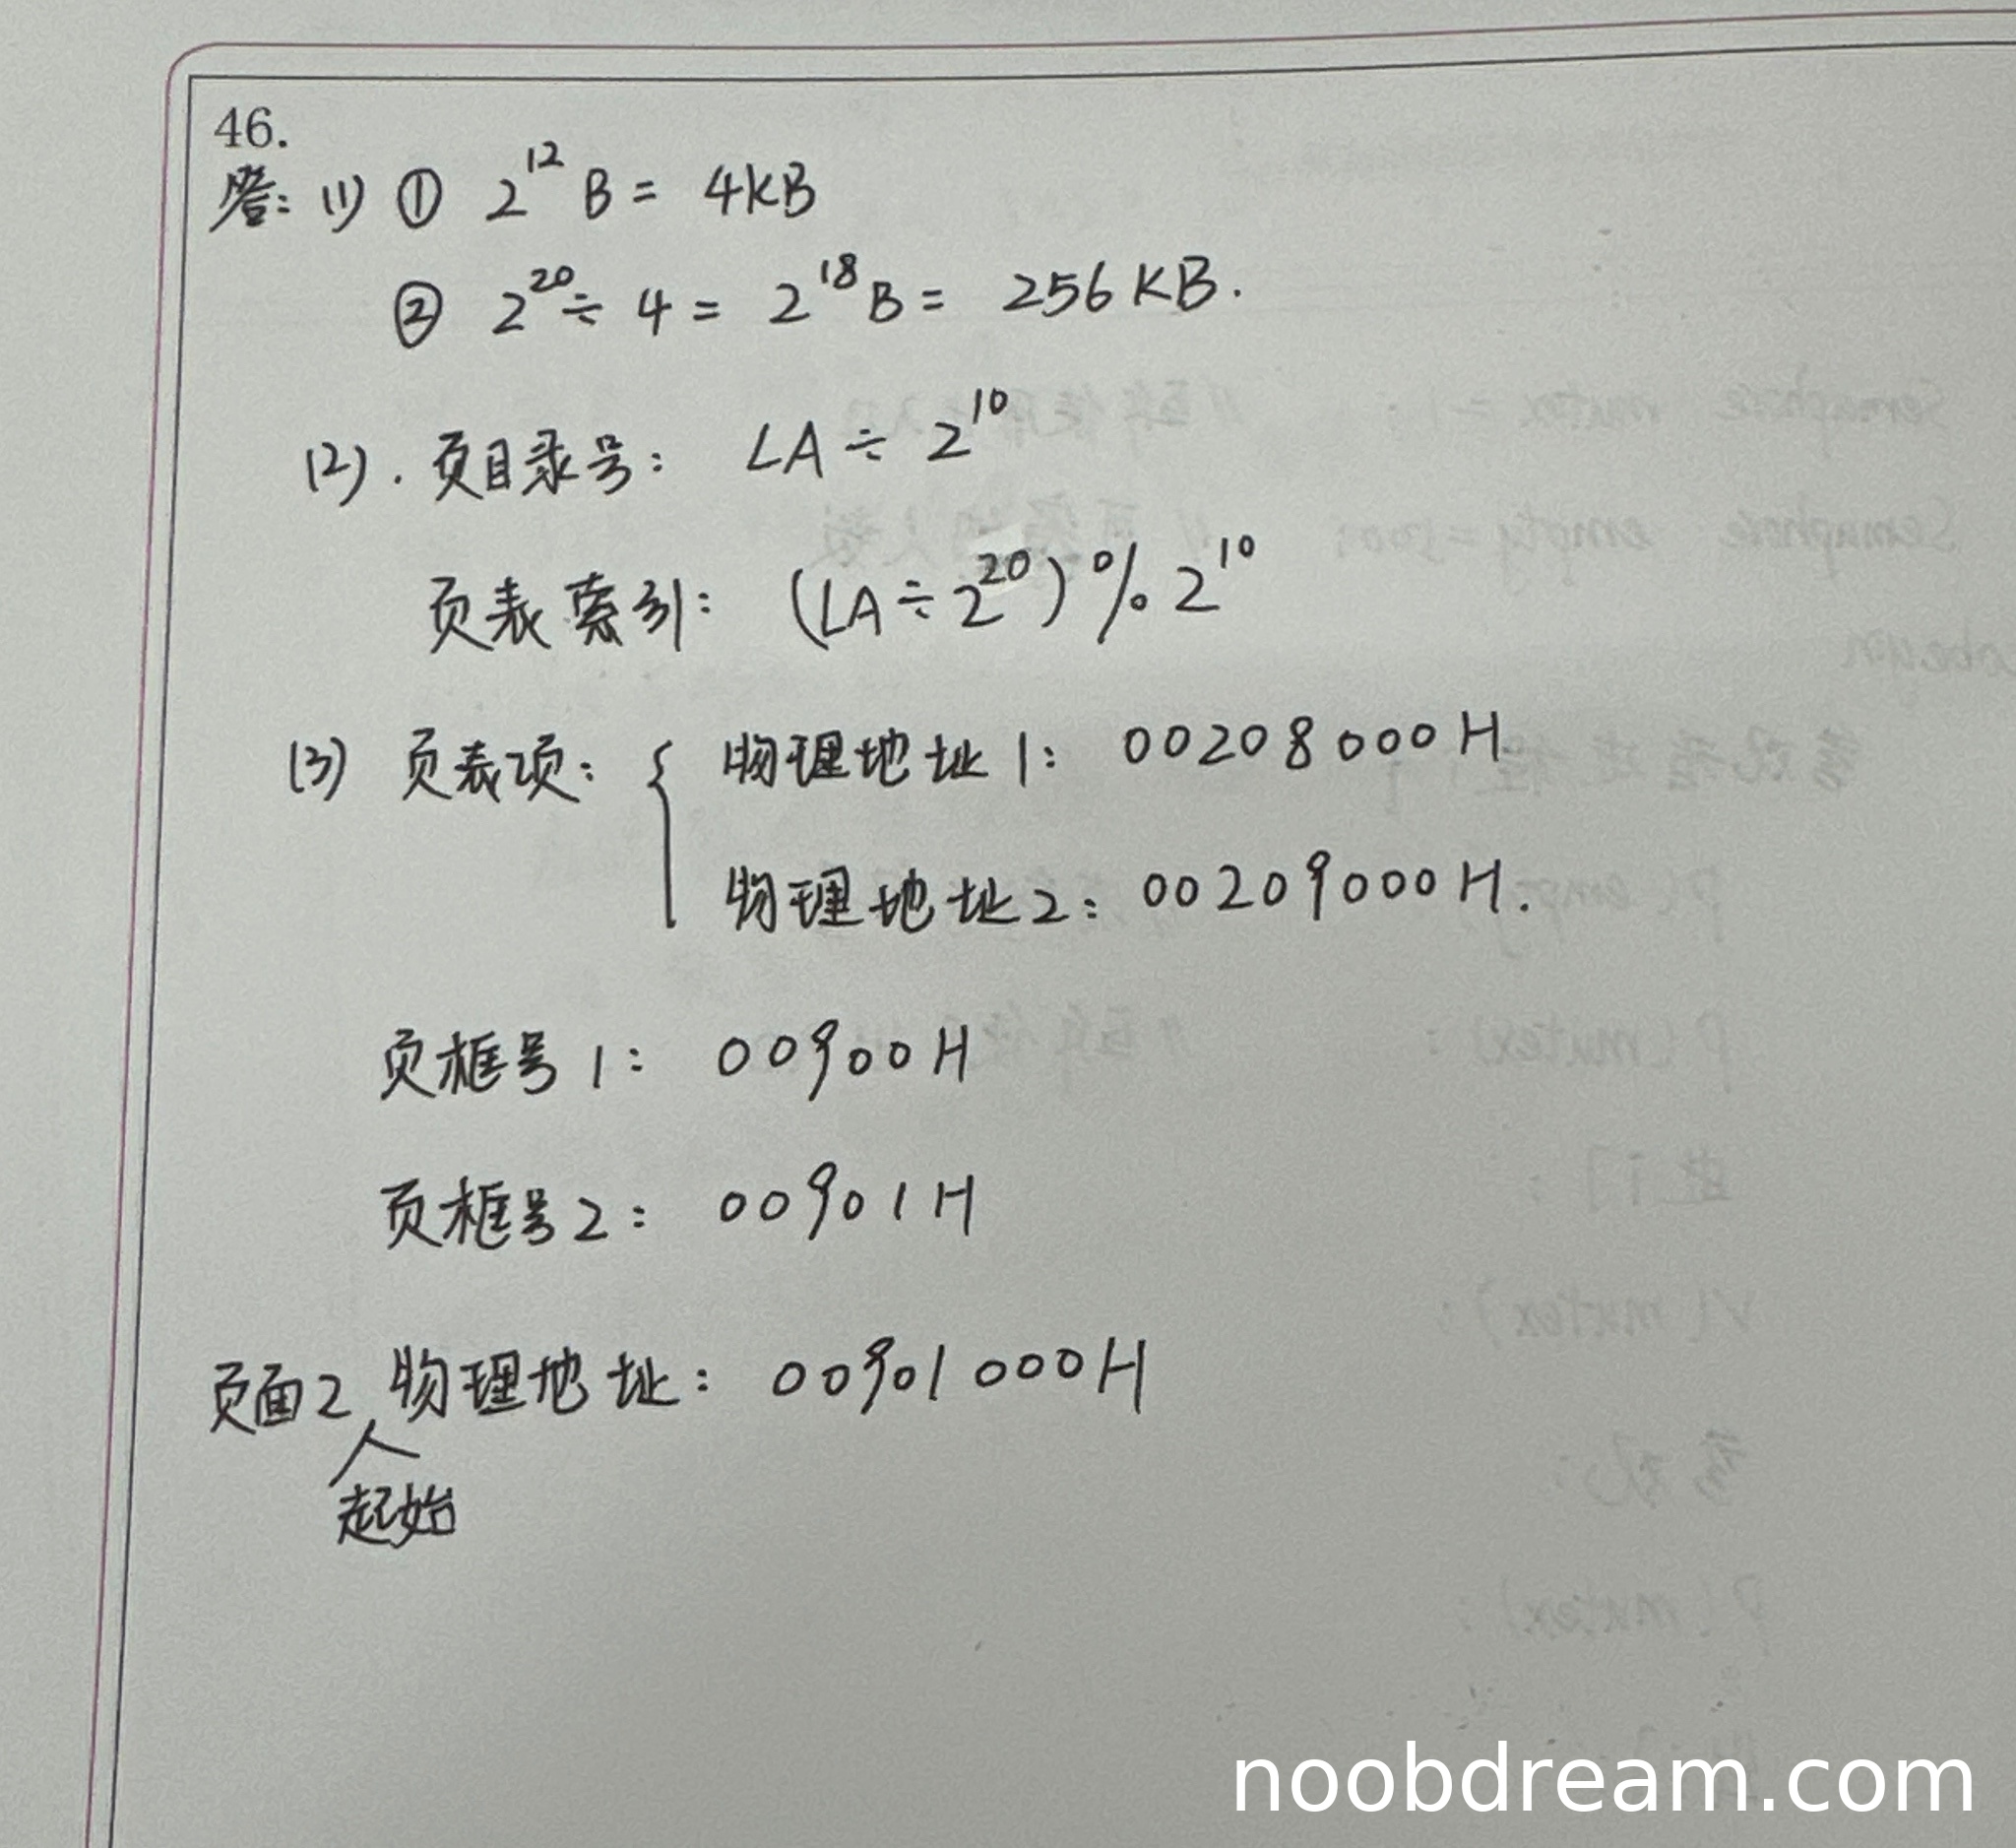 46.
答: (1) ① 2^12 B = 4KB
② 2^20 ÷ 4 = 2^18 B = 256 KB.
(2). 页目录号: LA ÷ 2^10
页表索引: (LA ÷ 2^20) % 2^10
(3) 页表项: { 物理地址1: 00208000H
物理地址2: 00209000H.
页框号1: 00900H
页框号2: 00901H
页面2起始物理地址: 00901000H
noobdream.com